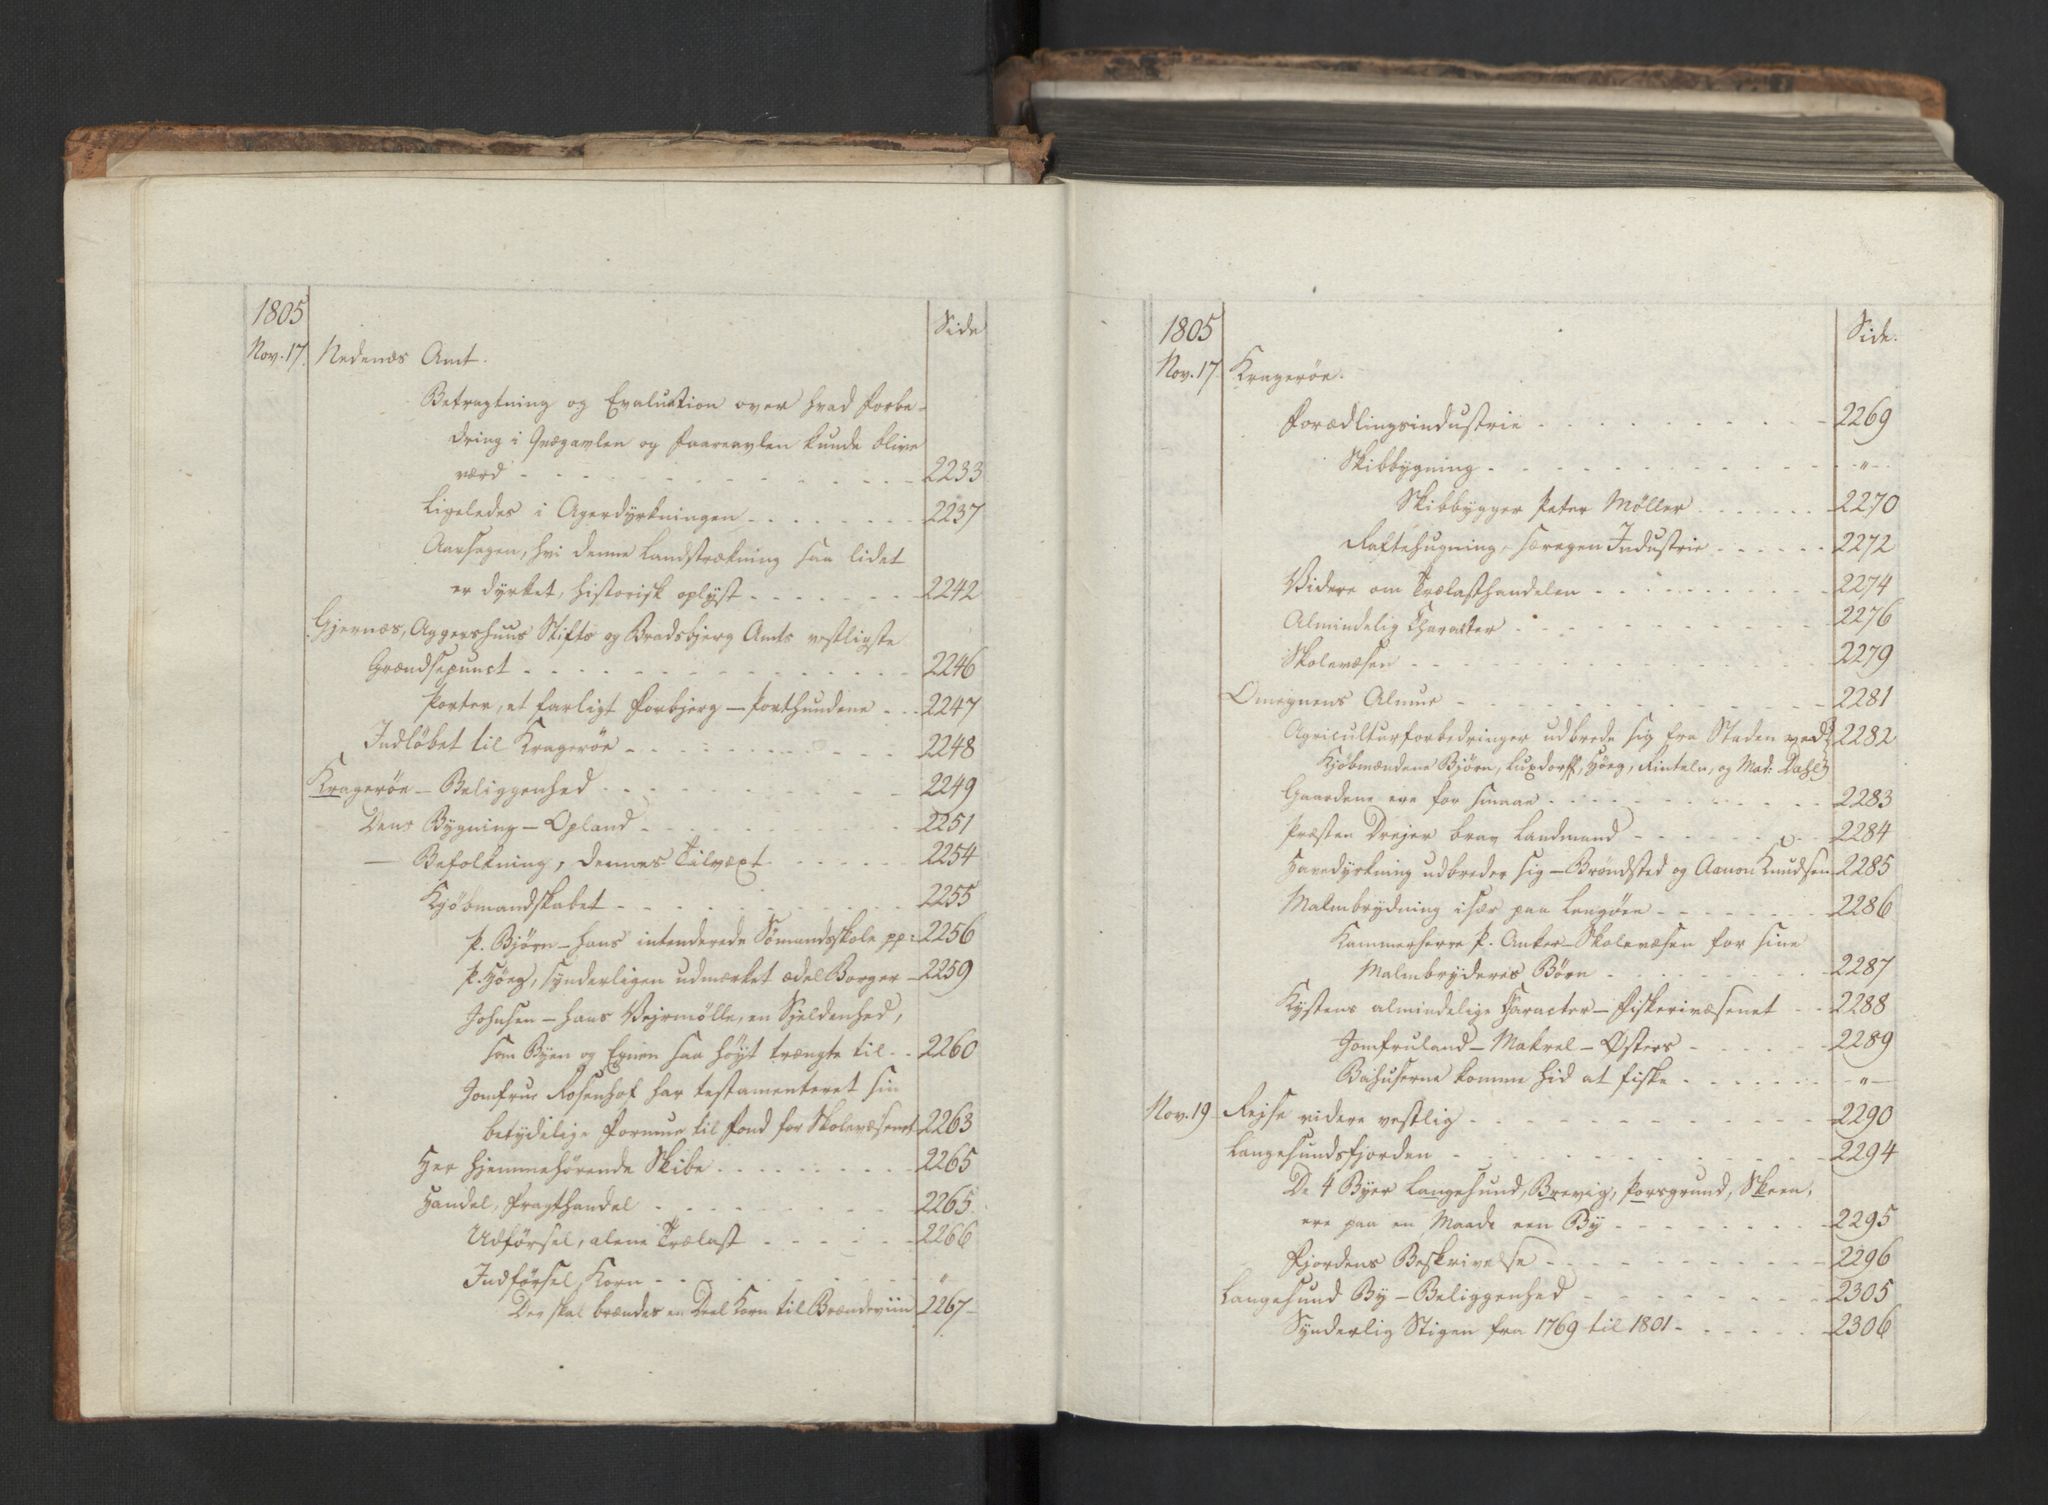 1805
Side
Nov. 17. Nedenæs Amt.
Betragtning og Evaluation over hvad Forbe-
dring i Qvægavlen og Faareavlen kunde blive
værd - - - 2233
Ligeledes i Agerdyrkningen - - - 2237
Aarsagen, hvi denne Landstrækning saa lidet
er dyrket, historisk oplyst - - - 2242
Gjernæs, Aggershuus Stifts og Bradsbjerg Amts vestligste
Grændsepunct - - - 2246
Porter, et farligt Forbjerg - Porthundene - - - 2247
Indløbet til Kragerøe - - - 2248
Kragerøe - Beliggenhed - - - 2249
Dens Bygning - Opland - - - 2251
— Befolkning, dennes Tilvæxt - - - 2254
Kjøbmandskabet - - - 2255
P. Bjørn - hans intenderede Sømandsskole pp: 2256
P. Høeg, synderligen udmærket ædel Borger - 2259
Johnsen - hans Vejrmølle, en Sjeldenhed,
som Byen og Egnen saa høyt trængte til - - 2260
Jomfrue Rosenhof har testamenteret sin
betydelige Formue til Fond for Skolevæsenet 2263
Her hjemmehørende Skibe - - - 2265
Handel, Fragthandel - - - 2265
Udførsel, alene Trælast - - - 2266
Indførsel, Korn - - - "
Der skal brændes en Deel Korn til Brændeviin 2267
1805
Side.
Nov. 17. Kragerøe.
Forædlingsindustrie - - - 2269
Skibbygning - - - "
Skibbygger Peter Møller - - - 2270
Raftehugning, særegen Industrie - - - 2272
Videre om Trælasthandelen - - - 2274
Almindelig Character - - - 2276
Skolevæsen - - - 2279
Omegnens Almue - - - 2281
Agriculturforbedringer udbrede sig fra Staden ved 2282
Kjøbmændene Bjørn, Luxdorff, Høeg, Rinteln, og Mad: Dahl
Gaardene ere for smaae - - - 2283
Præsten Drejer brav Landmand - - - 2284
Havedyrkning udbreder sig - Brøndsted og Aanon Knudsen 2285
Malmbrydning især paa Langøen - - - 2286
Kammerherre P. Anker - Skolevæsen for sine
Malmbryderes Børn - - - 2287
Kystens almindelige Character - Fiskerivæsenet - - 2288
Jomfruland - Makrel - Østers - - - 2289
Bahuserne komme hid at fiske - - - "
Nov. 19 Rejse videre vestlig - - - 2290
Langesundsfjorden - - - 2294
De 4 Byer Langesund, Brevig, Porsgrund, Skeen,
ere paa en Maade een By - - - 2295
Fjordens Beskrivelse - - - 2296
Langesund By - Beliggenhed - - - 2305
Synderlig Stigen fra 1769 til 1801 - - - 2306